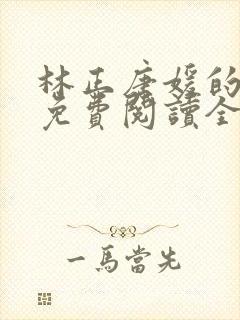 林正唐媛的
免費閱讀全
一馬當先